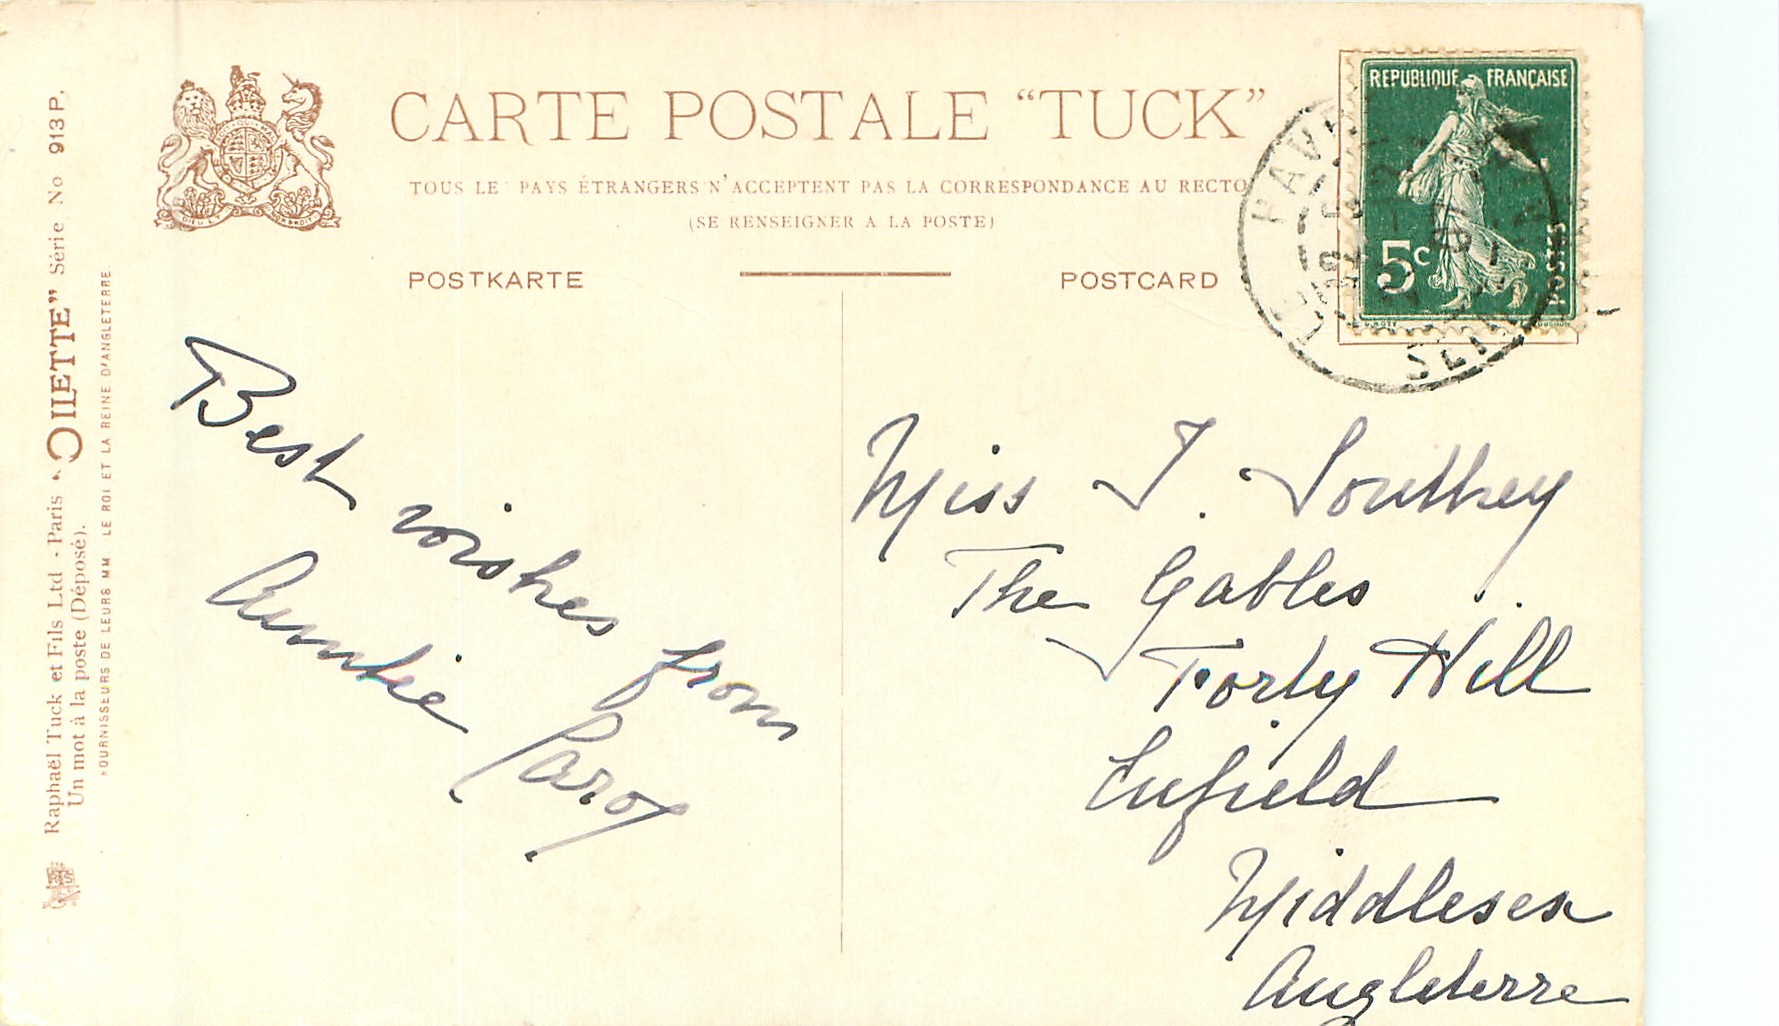 CARTE POSTALE “TUCK”
TOUS LE PAYS ÉTRANGERS N'ACCEPTENT PAS LA CORRESPONDANCE AU RECTO
(SE RENSEIGNER A LA POSTE)
POSTKARTE
POSTCARD
REPUBLIQUE FRANÇAISE
5c
POSTES
Best wishes from
Auntie
Miss J. Southey
The Gables
Forty Hill
Enfield
Middlesex
Angleterre
Raphaël Tuck et Fils Ltd - Paris “OILETTE” Série No 913 P.
Un mot à la poste (Déposé).
FOURNISSEURS DE LEURS MM LE ROI ET LA REINE D'ANGLETERRE.